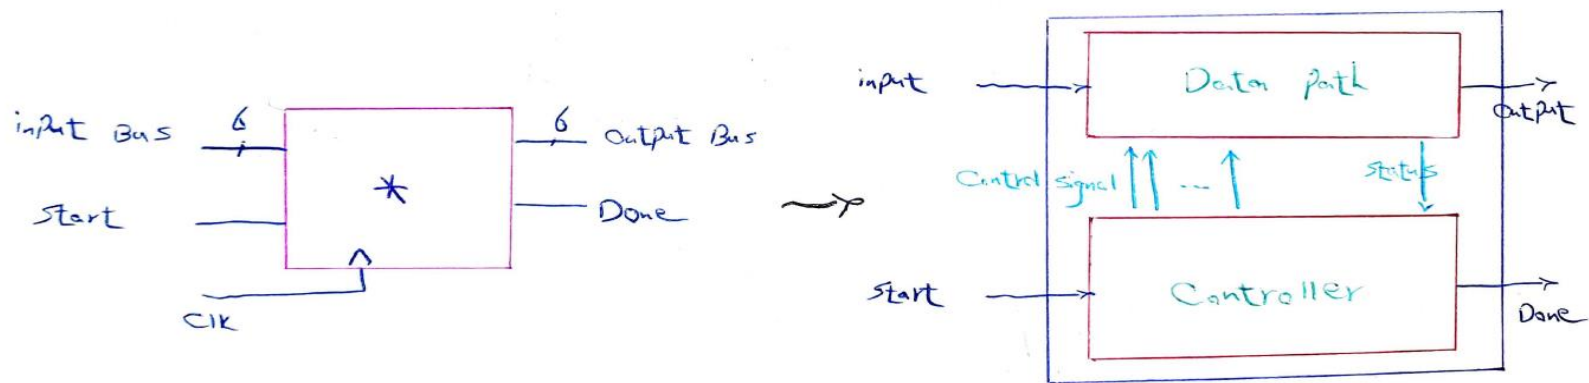 input Bus
6
*
6
Output Bus
Start
Done
Clk
input
Data path
Output
Control signal
...
Status
Start
Controller
Done